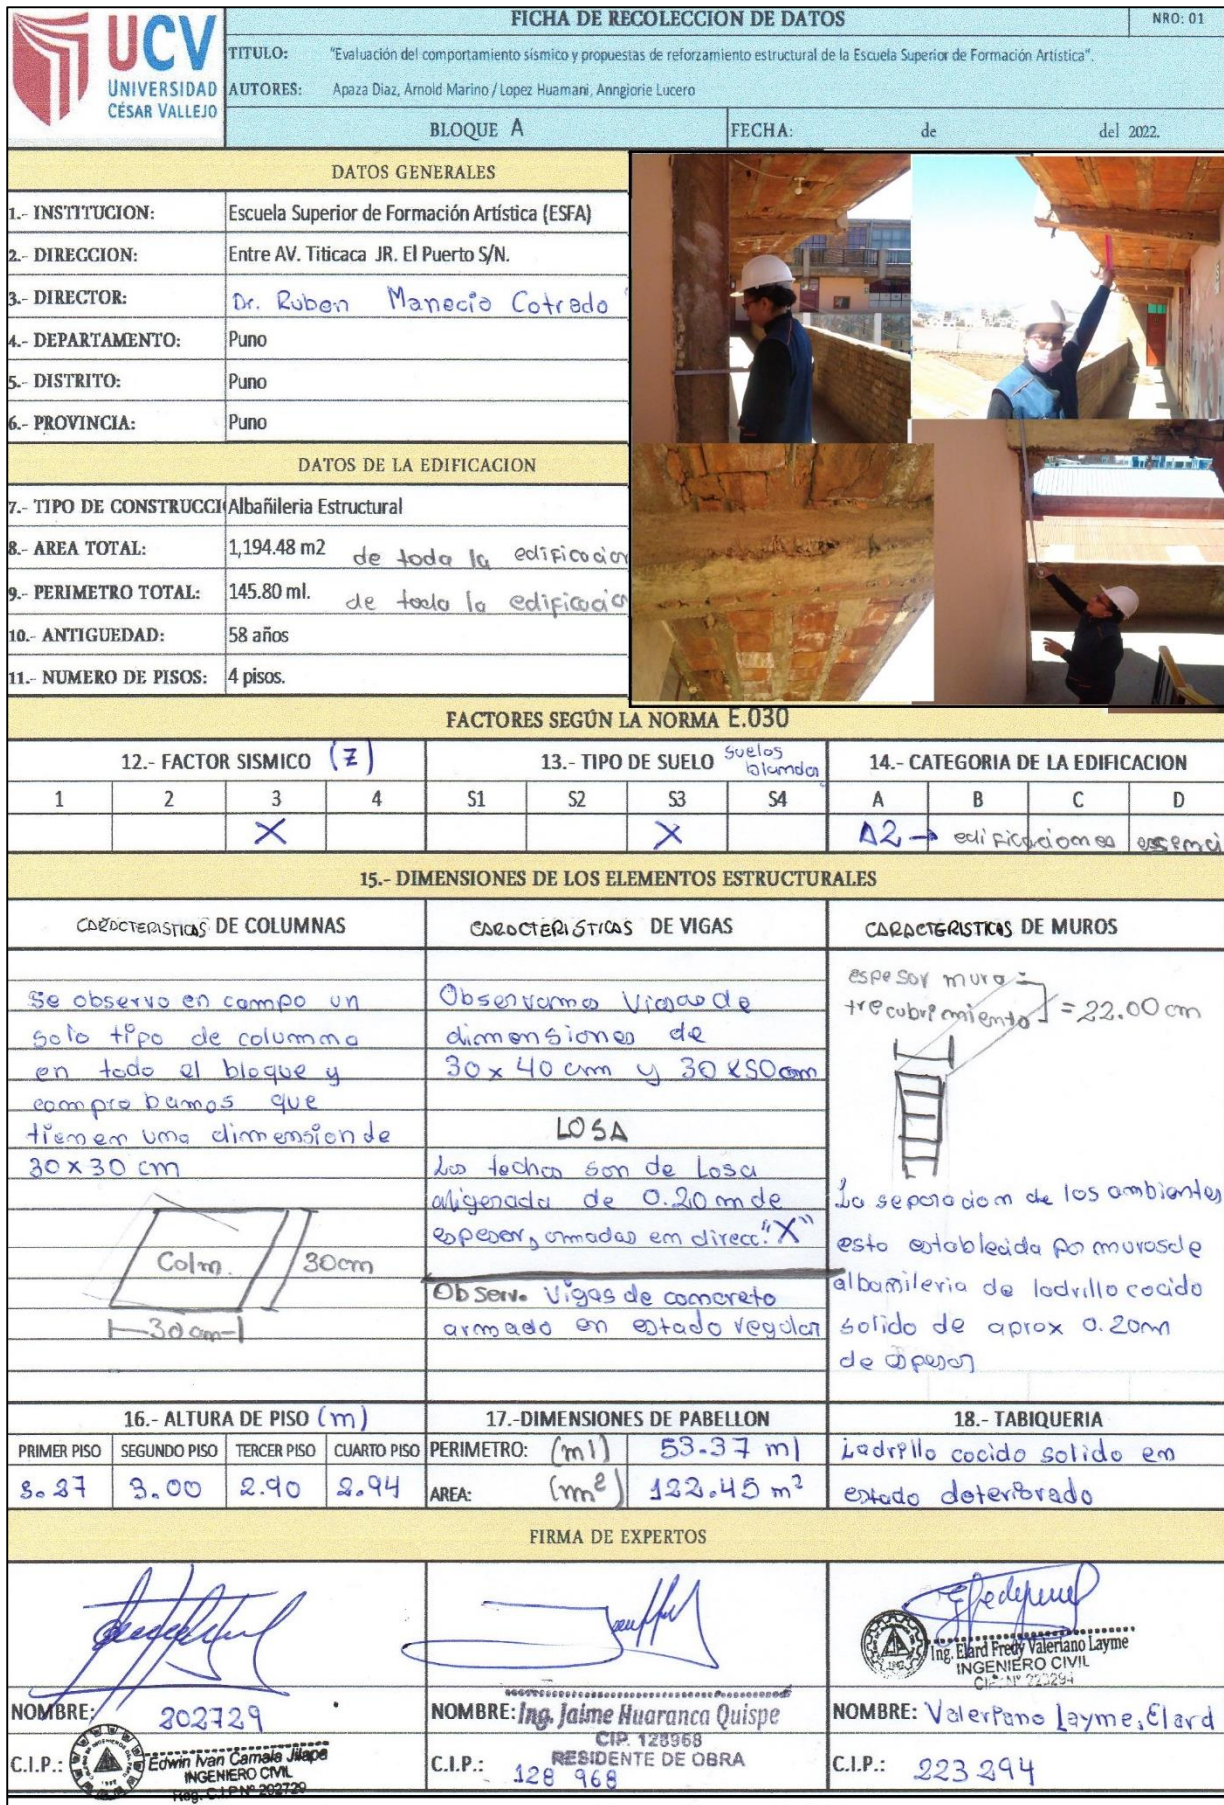 UCV
UNIVERSIDAD
CÉSAR VALLEJO
FICHA DE RECOLECCION DE DATOS
NRO: 01
TITULO: "Evaluación del comportamiento sísmico y propuestas de reforzamiento estructural de la Escuela Superior de Formación Artística".
AUTORES: Apaza Diaz, Arnold Marino / Lopez Huamani, Anngiorie Lucero
BLOQUE A
FECHA: de del 2022.
DATOS GENERALES
1.- INSTITUCION: Escuela Superior de Formación Artística (ESFA)
2.- DIRECCION: Entre AV. Titicaca JR. El Puerto S/N.
3.- DIRECTOR: Dr. Ruben Manecio Cotrado
4.- DEPARTAMENTO: Puno
5.- DISTRITO: Puno
6.- PROVINCIA: Puno
DATOS DE LA EDIFICACION
7.- TIPO DE CONSTRUCCI Albañileria Estructural
8.- AREA TOTAL: 1,194.48 m2 de toda la edificacion
9.- PERIMETRO TOTAL: 145.80 ml. de toda la edificacio
10.- ANTIGUEDAD: 58 años
11.- NUMERO DE PISOS: 4 pisos.
FACTORES SEGÚN LA NORMA E.030
12.- FACTOR SISMICO (Z)
13.- TIPO DE SUELO suelos blandos
14.- CATEGORIA DE LA EDIFICACION
1 2 3 4 S1 S2 S3 S4 A B C D
X X A2 → edificaciones esenci
15.- DIMENSIONES DE LOS ELEMENTOS ESTRUCTURALES
CARACTERISTICAS DE COLUMNAS
Se observo en campo un
solo tipo de columna
en todo el bloque y
comprobamos que
tienen una dimension de
30 x 30 cm
Colm.
30cm
30cm
CARACTERISTICAS DE VIGAS
Observamos Vigas de
dimensiones de
30 x 40 cm y 30 x 50 cm
LOSA
Los techos son de Losa
aligerada de 0.20 m de
espesor, armadas en direcc. "X"
Observ. Vigas de concreto
armado en estado regular
CARACTERISTICAS DE MUROS
espesor muro
+recubrimiento = 22.00 cm
La separacion de los ambientes
esta establecida por muros de
albañileria de ladrillo cocido
solido de aprox 0.20m
de espesor
16.- ALTURA DE PISO (m)
PRIMER PISO SEGUNDO PISO TERCER PISO CUARTO PISO
3.00 2.90 2.94
17.-DIMENSIONES DE PABELLON
PERIMETRO: (ml) 53.37 ml
AREA: (m²) 122.45 m²
18.- TABIQUERIA
Ladrillo cocido solido en
estado deteriorado
FIRMA DE EXPERTOS
NOMBRE: 202729
C.I.P.: Edwin Ivan Camala Jilapa
INGENIERO CIVIL
Reg. C.I.P Nº 202729
NOMBRE: Ing. Jaime Huaranca Quispe
CIP. 128968
RESIDENTE DE OBRA
C.I.P.: 128 968
Ing. Elard Fredy Valeriano Layme
INGENIERO CIVIL
CIP. Nº 223294
NOMBRE: Valeriano Layme, Elard
C.I.P.: 223 294